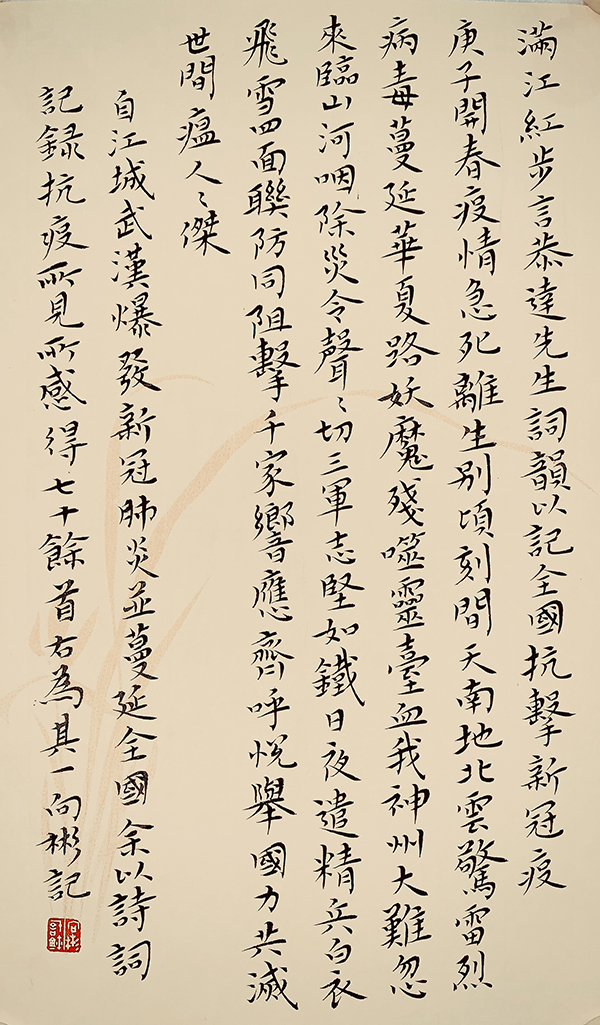 滿江紅步言恭達先生詞韻以記全國抗擊新冠疫
庚子開春疫情急死離生别頃刻間天南地北雲驚雷烈
病毒蔓延華夏路妖魔殘噬靈臺血我神州大難忽
來臨山河咽除災令聲〻切三軍志堅如鐵日夜遣精兵白衣
飛雪四面聯防同阻擊千家響應齊呼悅舉國力共滅
世間瘟人〻傑
自江城武漢爆發新冠肺炎並蔓延全國余以詩詞
記録抗疫所見所感得七十餘首右為其一向彬記